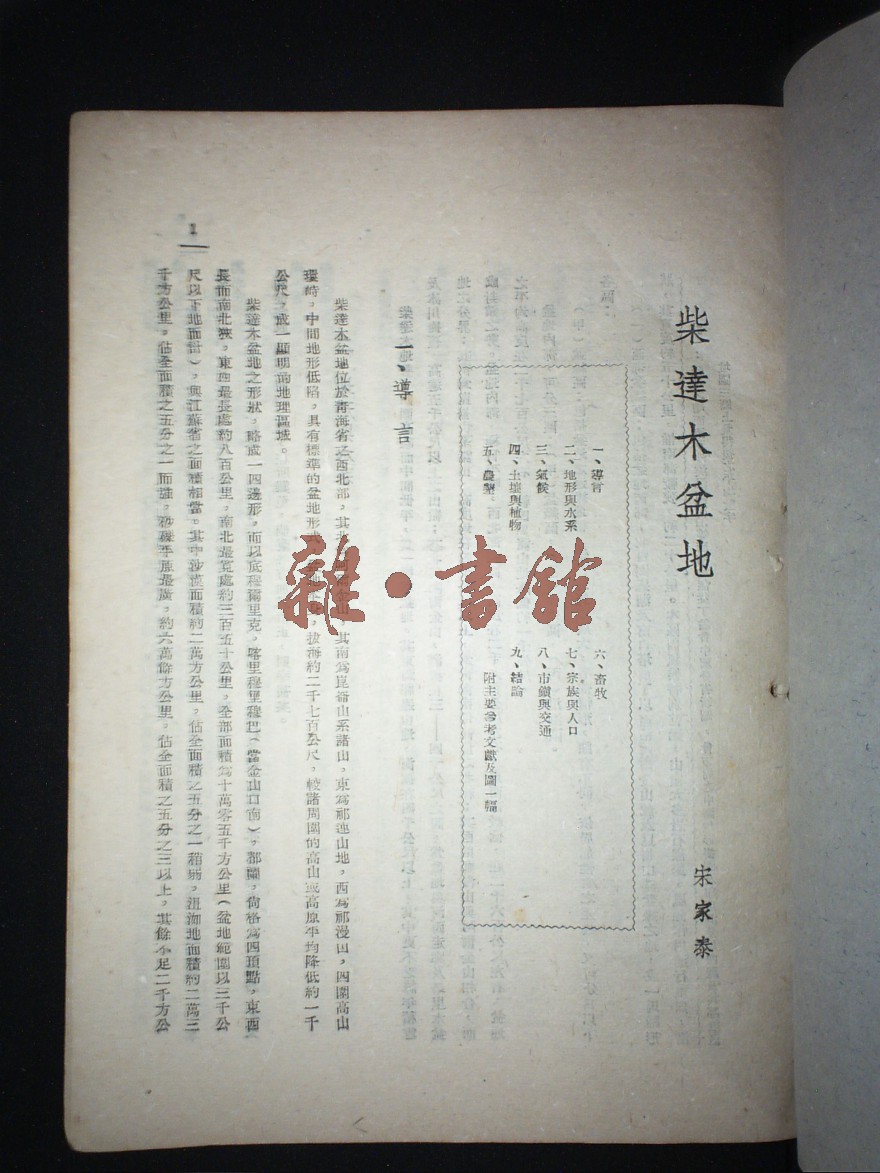 柴達木盆地
宋家泰
一、導言
二、地形與水系
三、氣候
四、土壤與植物
五、農墾
六、畜牧
七、宗族與人口
八、市鎮與交通
九、結論
附主要參考文獻及圖一幅
一、導言
柴達木盆地位於靑海省之西北部，其北為阿爾金山，其南為崑崙山系諸山，東為祁連山地，西為祁漫山，四圍高山
環峙，中間地形低陷，具有標準的盆地形式，拔海約二千七百公尺，較諸周圍的高山或高原平均降低約一千
公尺，成一顯明的地理區域。
柴達木盆地之形狀，略成一四邊形，而以底穆爾里克，喀里穆里穆巴（當金山口南），都蘭，倘格為四頂點，東西
長而南北狹，東西最長處約八百公里，南北最寬處約三百五十公里，全部面積為十萬零五千方公里（盆地範圍以三千公
尺以下地面計），與江蘇省之面積相當。其中沙漠面積約二萬方公里，佔全面積之五分之一稍弱，沮洳地面積約二萬三
千方公里，佔全面積之五分之一而強，砂磧平原最廣，約六萬餘方公里，佔全面積之五分之三以上，其餘不足二千方公
1
雜·書館